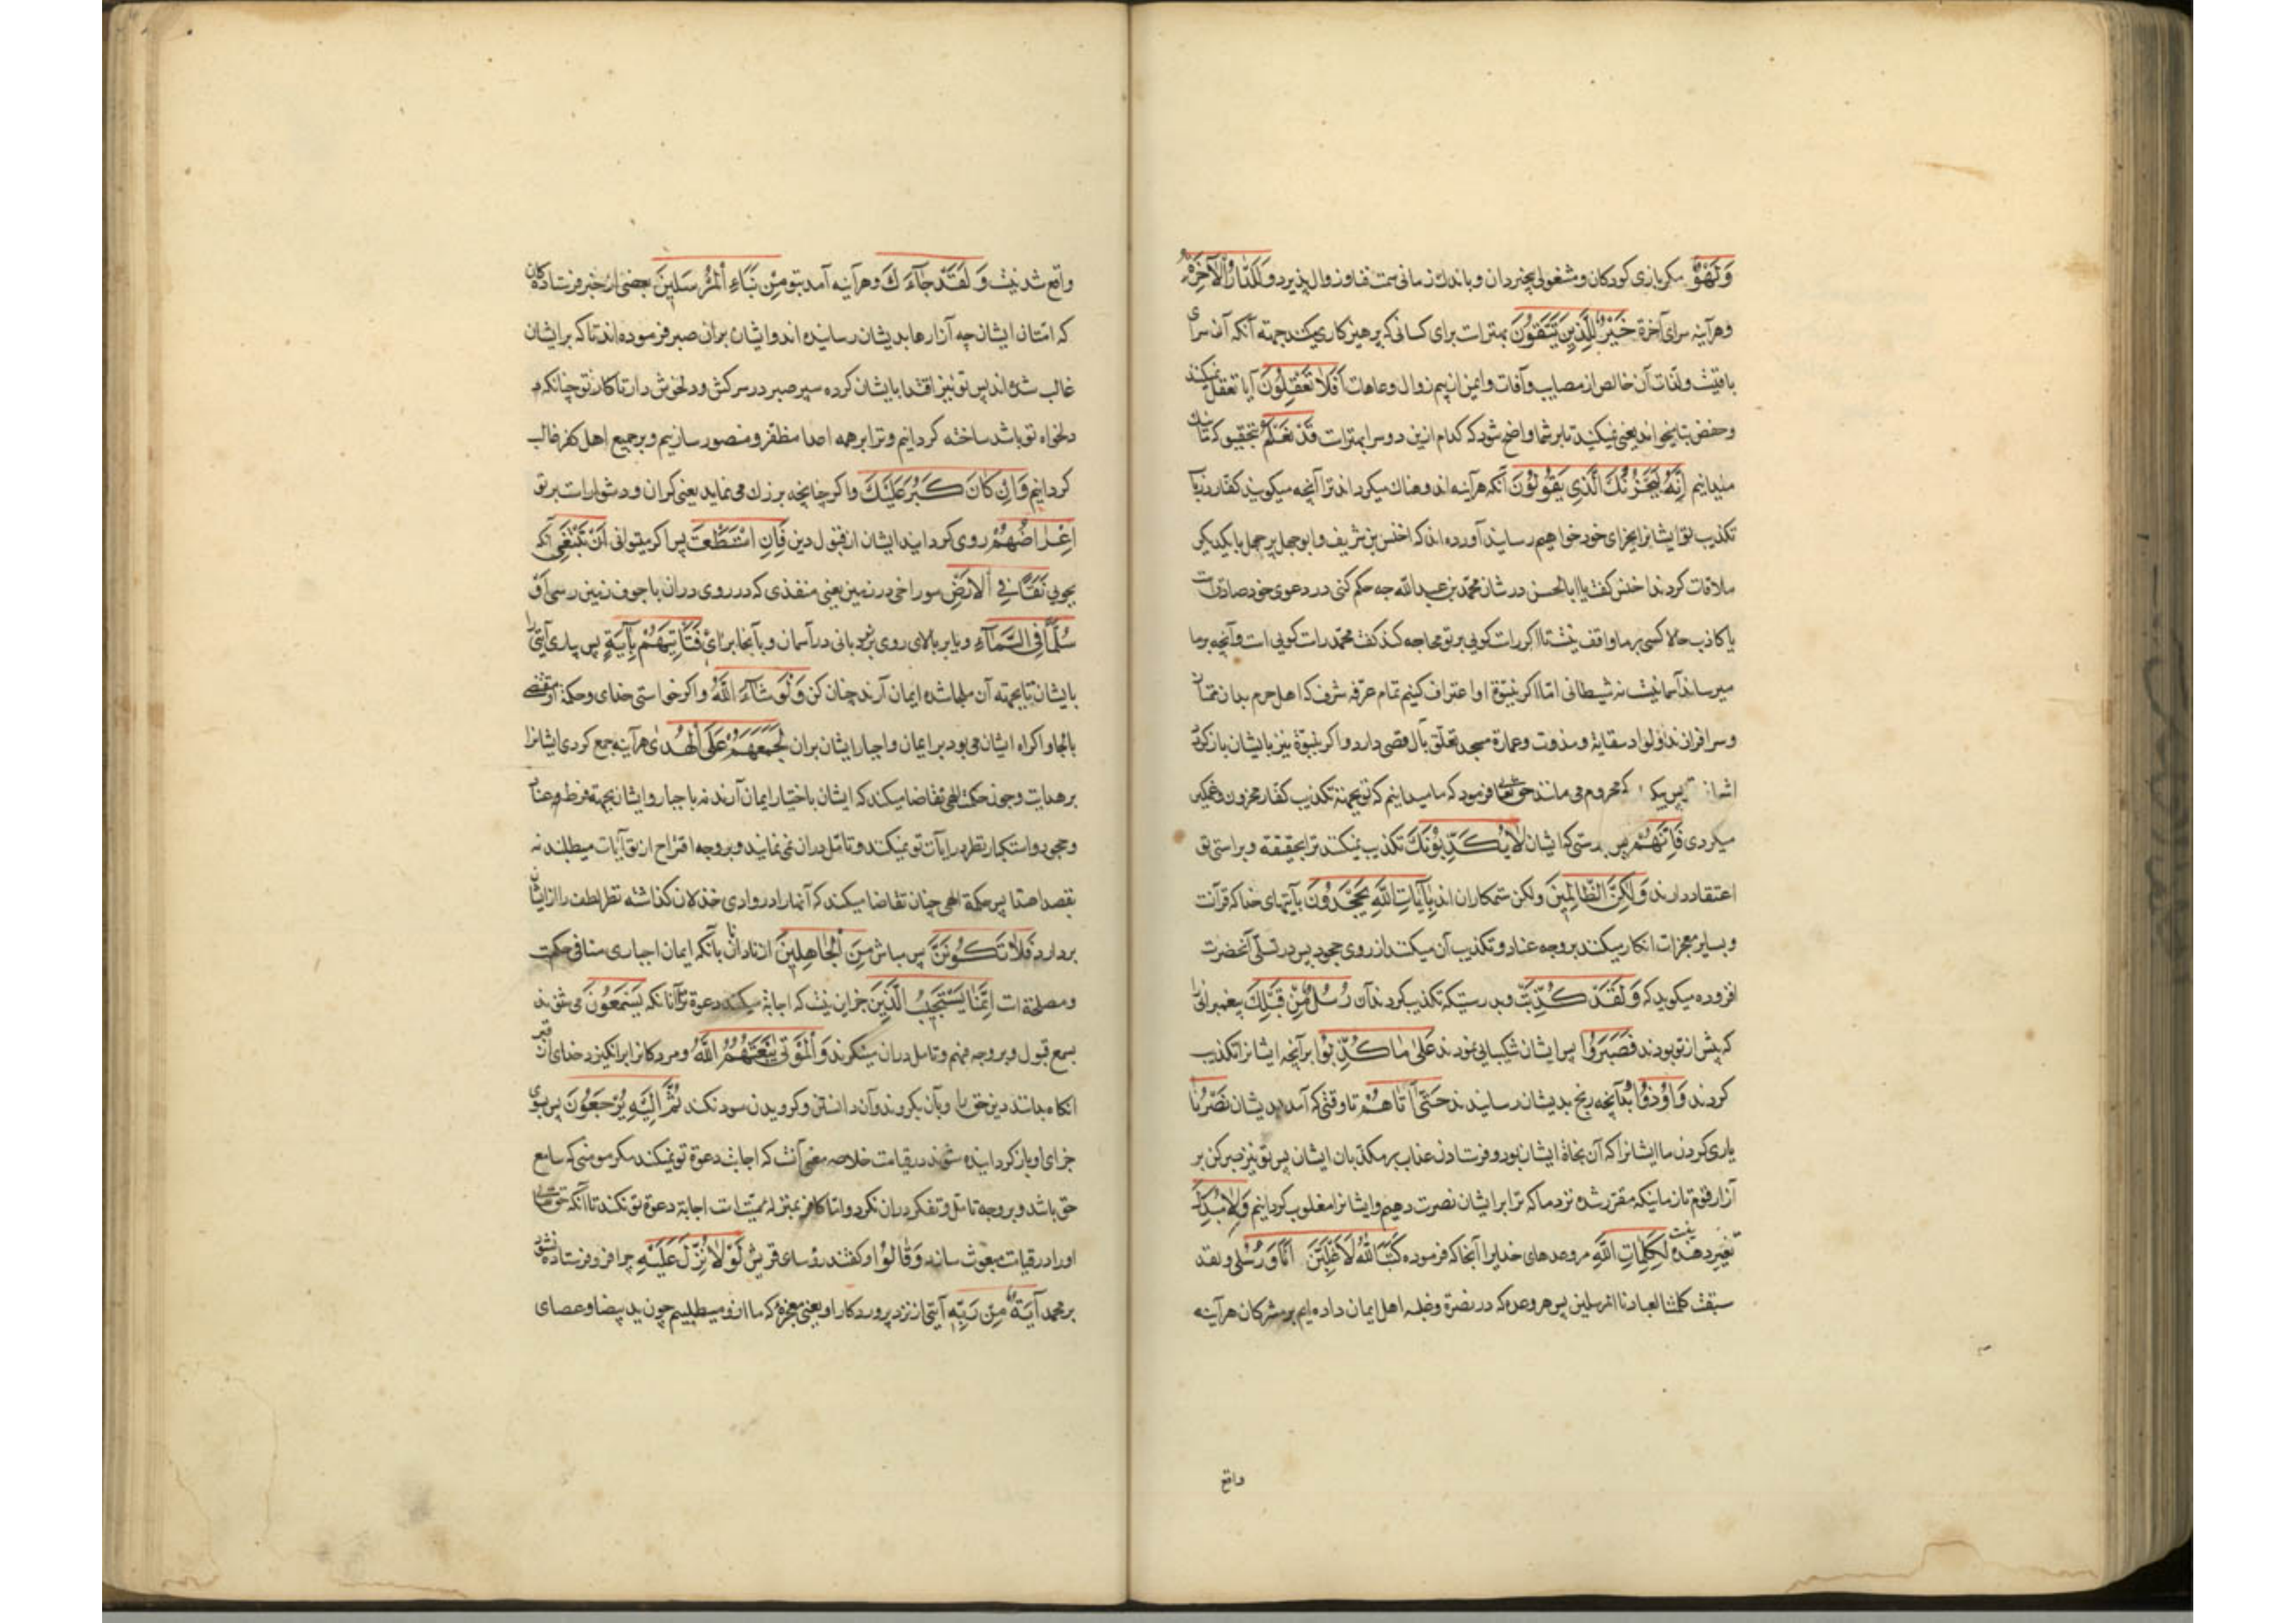 وَلَهْوٌ مکر بازی کودکان و مشغولی بیخردان و باندك زمانی سمت نفاد و زوال پذیرد وَلَلدَّارُ الْآخِرَةُ
وهرآینه سرای آخرة خَیْرٌ لِلَّذِینَ یَتَّقُونَ بهترات برای کسانی که پرهیزکاری میکنند جهته آنکه آن سرای
باقیست ولذات آن خالص از مصایب وآفات وایمن از بیم زوال وعاهات اَفَلَا تَعْقِلُونَ آیا تعقل نمیکنند
وحفص بتا میخواند یعنی نمیکنید تا برشما واضح شود که کدام ازین دو سرا بهترات قَدْ نَعْلَمُ بتحقیق که
میدانیم اِنَّهُ لَیَحْزُنُكَ الَّذِی یَقُولُونَ آنکه هرآینه اندوهناك میکرداند ترا آنچه میکویند کفار
تکذیب تو ایشانرا بجزای خود خواهیم رسانید آورده اند که اخنس بن شریف و ابوجهل پر جهل با یکدیکر
ملاقات کردند اخنس کفت یا ابا الحسن در شان محمد بن عبد الله چه حکم کنی در دعوی خود صادق است
یا کاذب حالا کسی بر ما واقف نیست تا اکر راست کویی بر تو محاجه کند کفت محمد راست کویی است وآنچه بر ما
میرساند آسمانیست نه شیطانی اما اکر بنبوّة او اعتراف کنیم تمام عرفه شرف که اهل حرم بدان
وسرافرازند واولواد سقایة و وعمارة مسجد تعلّق بآل قصی دارد واکر نبوّة نیز بایشان بازکردد
پس محروم می مانند حق تعا فرمود که ما میدانیم که تو بجهته تکذیب کفار محزون وغمکین
میکردی فَاِنَّهُمْ پس بدرستی که ایشان لَا یُکَذِّبُونَكَ تکذیب نمیکنند ترا بحقیقة وبراستی تو
اعتقاد دارند وَلٰکِنَّ الظَّالِمِینَ ولکن ستمکاران اند بِآیَاتِ اللّٰهِ یَجْحَدُونَ بآیتهای خدا که قرآنست
وبسایر معجزات انکار میکنند بر وجه عناد وتکذیب آن میکنند از روی جحود پس در تسلّی آنحضرت
افزوده میکوید که وَلَقَدْ کُذِّبَتْ وبدرستیکه تکذیب کردند آن رُسُلٌ مِنْ قَبْلِكَ پیغمبرانی را
که پیش از تو بودند فَصَبَرُوا پس ایشان شکیبایی نمودند عَلیٰ مَا کُذِّبُوا برآنچه ایشانرا تکذیب
کردند وَاُوذُوا بآنچه رنج بدیشان رسانیدند حَتّیٰ اَتَاهُمْ تا وقتی که آمد بدیشان نَصْرُنَا
یاری کردن ما ایشانرا که آن نجاة ایشان بود و فرستادن عذاب بر مکذبان ایشان پس تو نیز صبر کن بر
آزار قوم تا زمانیکه مقرّر شده نزد ما که ترا بر ایشان نصرت دهیم وایشانرا مغلوب کردانیم وَلَا مُبَدِّلَ
نیست تغییر دهنده لِکَلِمَاتِ اللّٰهِ مر وعدهای خدایرا آنجا که فرموده کَتَبَ اللّٰهُ لَاَغْلِبَنَّ اَنَا وَرُسُلِی ولقد
سبقت کلمتنا لعبادنا المرسلین پس هر وعده که در نصرة وغلبه اهل ایمان داده ایم بر مشرکان هرآینه
واقع
واقع شدنیست وَلَقَدْ جَآءَكَ وهرآینه آمد بتو مِنْ نَبَاءِ الْمُرْسَلِینَ بعضی از خبر فرستادکان
که امّتان ایشان چه آزارها بدیشان رسانیده اند وایشان بران صبر فرموده اند تا که بر ایشان
غالب شده اند پس تو نیز اقتدا بایشان کرده سپر صبر در سر کش ودلخوش دار تا کار تو چنانکه
دلخواه تو باشد ساخته کردانیم وترا بر همه اعدا مظفر ومنصور سازیم وبر جمیع اهل کفر غالب
کردانیم وَاِنْ کَانَ کَبُرَ عَلَیْكَ واکر چنانچه بزرك می نماید یعنی کران ودشوار است بر تو
اِعْرَاضُهُمْ روی کردانیدن ایشان از قبول دین فَاِنِ اسْتَطَعْتَ پس اکر میتوانی اَنْ تَبْتَغِیَ آنکه
بجویی نَفَقًا فِی الْاَرْضِ سوراخی در زمین یعنی منفذی که در روی دران باجوف زمین رسی اَوْ
سُلَّمًا فِی السَّمَآءِ ویا بر بالای روی نردبانی در آسمان وبآنجا برای فَتَاْتِیَهُمْ بِآیَةٍ پس بیاری آیتی را
بایشان تا بجهته آن ملجا شده ایمان آرند چنان کن وَلَوْ شَآءَ اللّٰهُ واکر خواستی خدای وحکمة او مقتضی
بالجا واکراه ایشان می بود بر ایمان واجبار ایشان بران لَجَمَعَهُمْ عَلَی الْهُدیٰ هرآینه جمع کردی ایشانرا
بر هدایت وچون حکمت الهی تقاضا میکند که ایشان باختیار ایمان آرند نه باجبار وایشان بجهته فرط عناد
وجحود واستکبار نظر در آیات تو نمیکنند وتامّل دران نمی نمایند وبر وجه اقتراح از تو آیات میطلبند نه
بقصد اهتدا پس حکمة الهی چنان تقاضا میکند که آنهارا در وادی خذلان کذاشته نظر لطف را از ایشان
بردارد فَلَا تَکُونَنَّ پس مباش مِنَ الْجَاهِلِینَ از نادانان بآنکه ایمان اجباری منافی حکمت
ومصلحة است اِنَّمَا یَسْتَجِیبُ الَّذِینَ جز این نیست که اجابة میکند دعوة ترا آنانکه یَسْمَعُونَ می شنوند
بسمع قبول وبر وجه فهم وتامل دران مینکرند وَالْمَوْتیٰ یَبْعَثُهُمُ اللّٰهُ ومردکانرا برانکیزد خدای از قبر
آنکاه بدانند دین حق را وبآن بکروند وآن دانستن وکرویدن سود نکند ثُمَّ اِلَیْهِ یُرْجَعُونَ پس بسوی
جزای او بازکردانیده شوند در قیامت خلاصه معنی آنست که اجابت دعوة تو نمیکند مکر مومنی که سامع
حق باشد وبر وجه تامّل وتفکر دران نکرد وامّا کافر بمنزله میّت است اجابة دعوة تو نکند تا آنکه حق تعالی
اورا در قیامت مبعوث سازد وَقَالُوا وکفتند رؤسای قریش لَوْلَا نُزِّلَ عَلَیْهِ چرا فرو فرستاده نشد
بر محمد آیَةٌ مِنْ رَبِّهِ آیتی از نزد پروردکار او یعنی معجزه که ما ازو میطلبیم چون ید بیضا وعصای